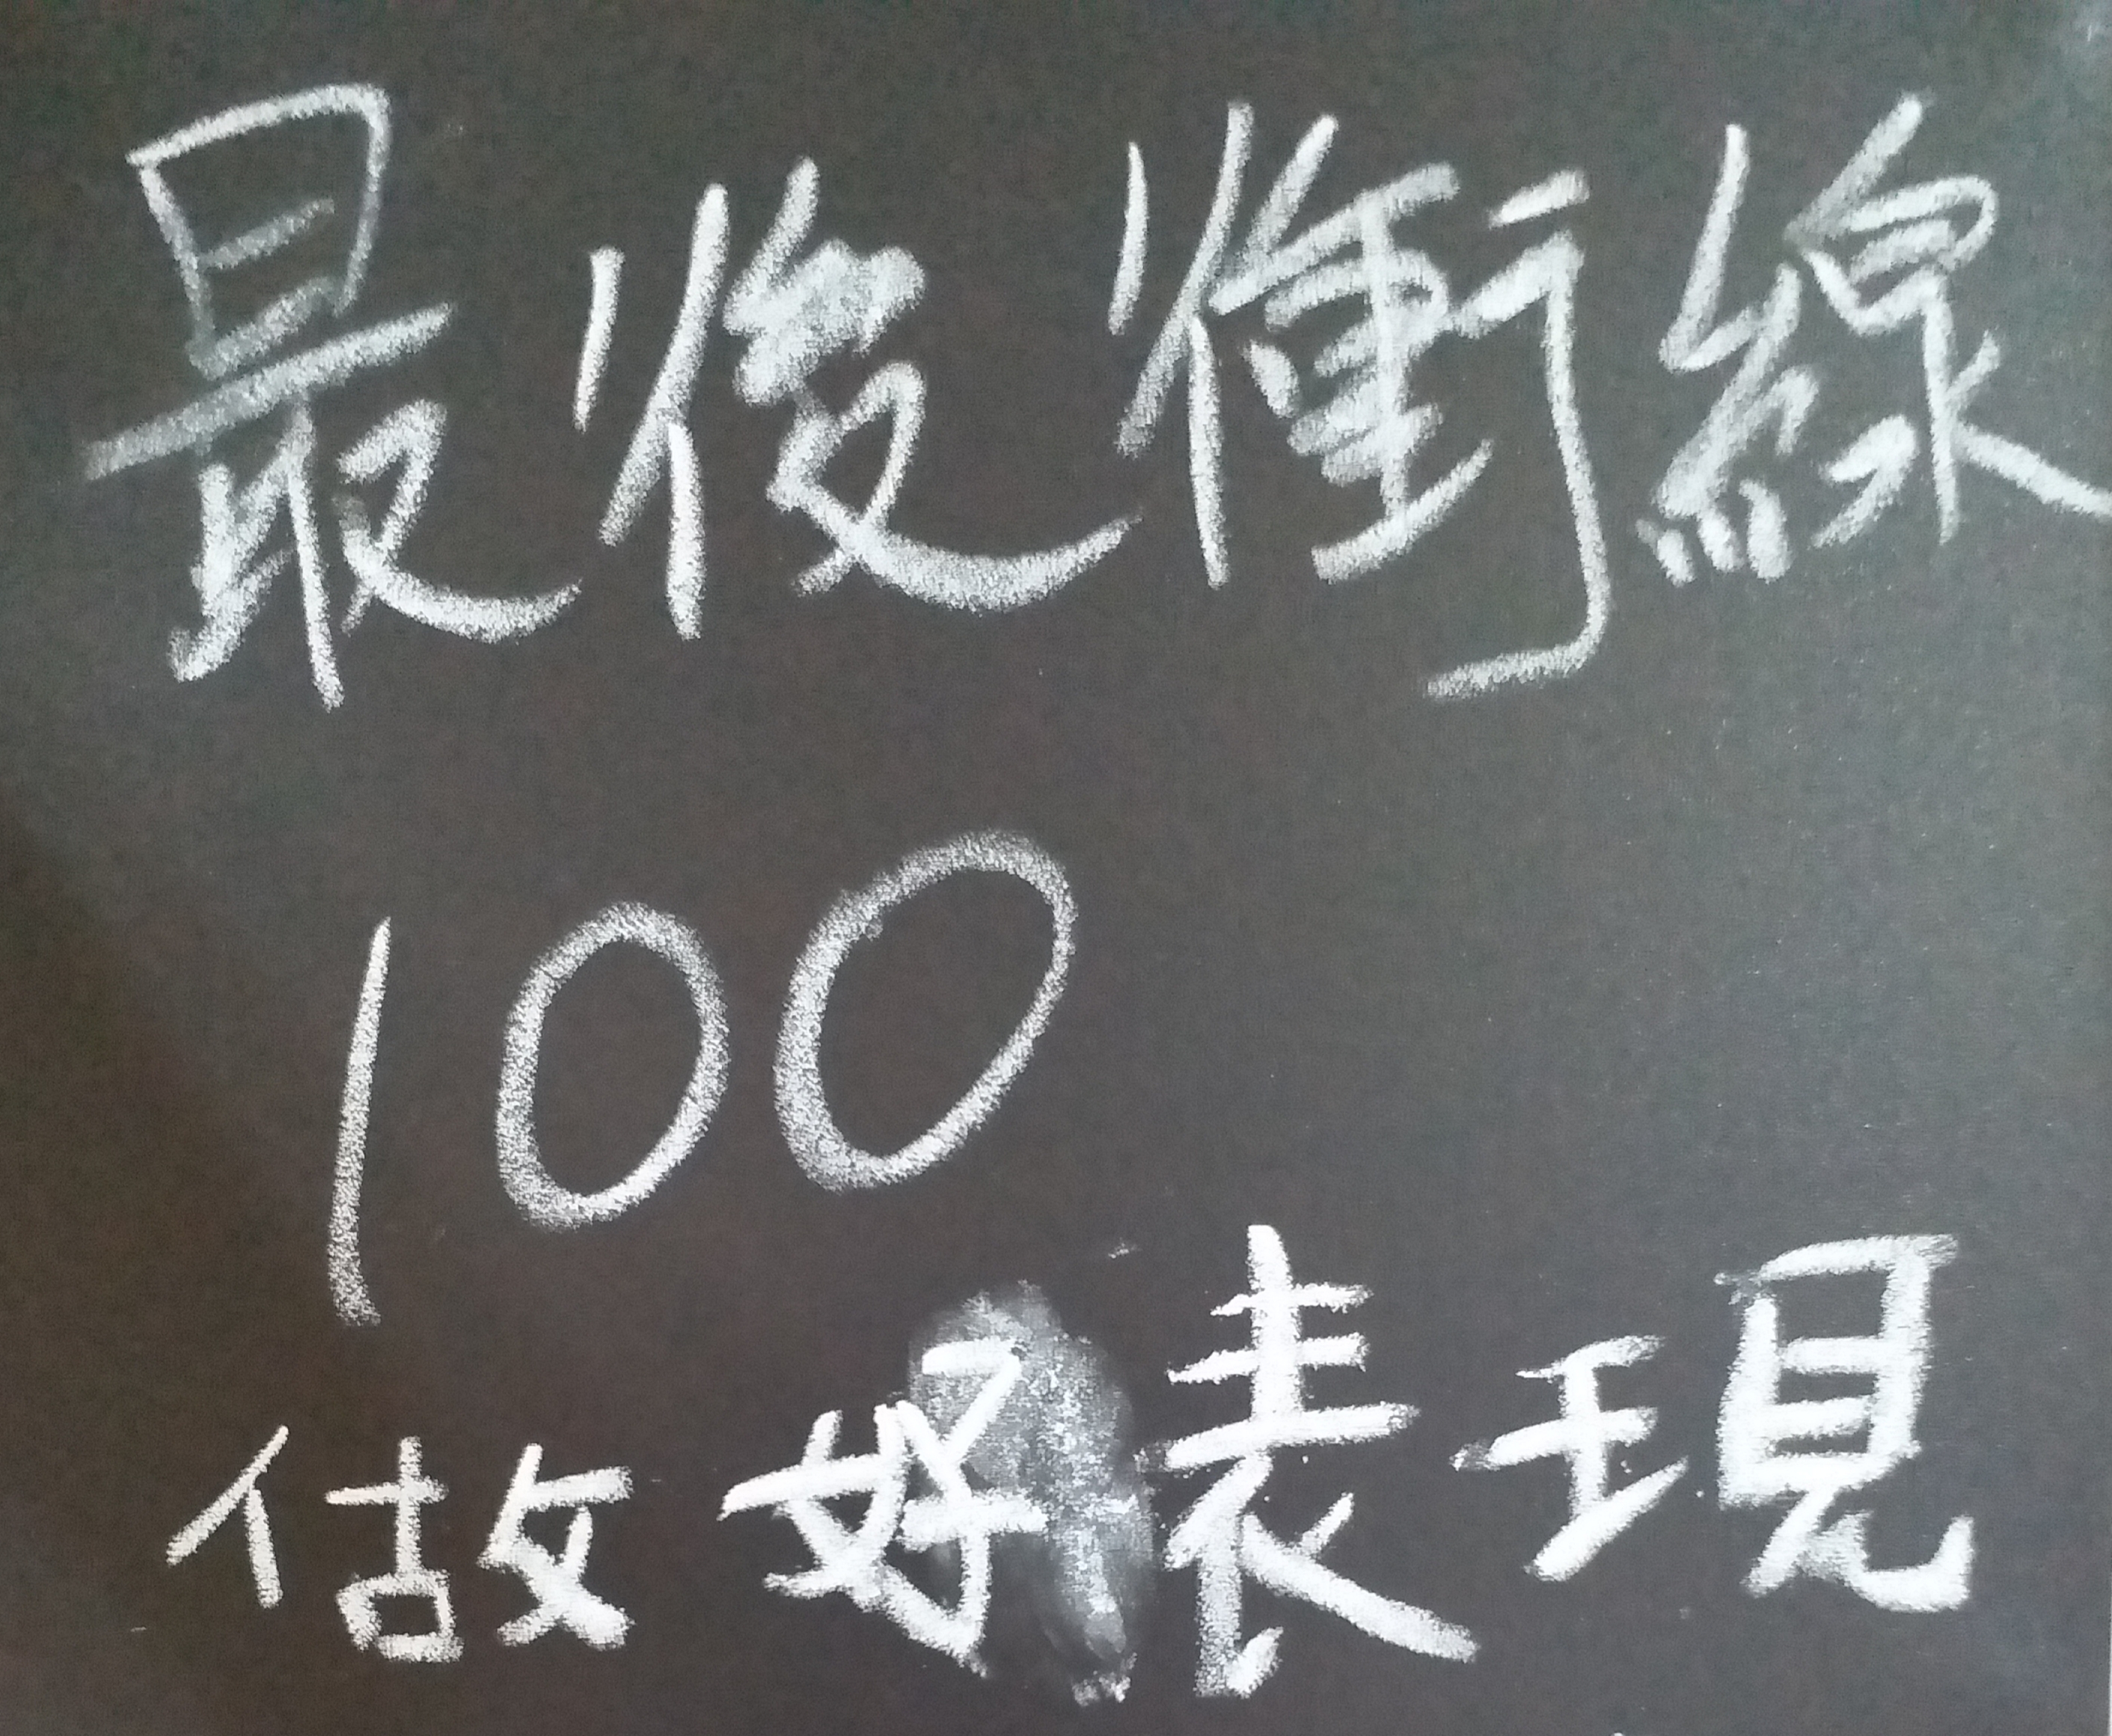 最後衝線
100
做好表現